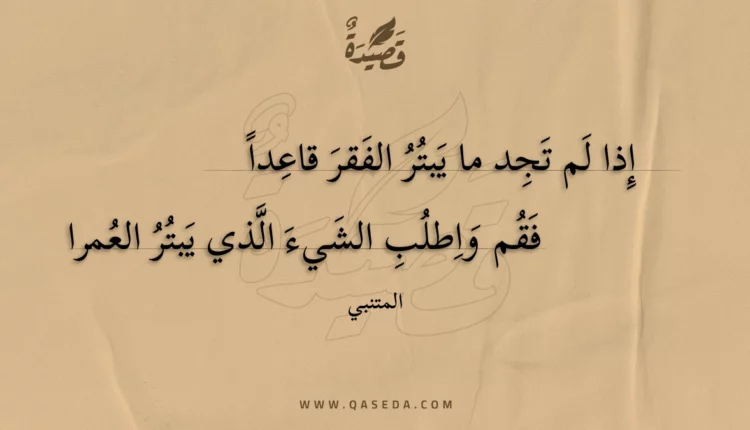 قَصِيدَةٌ
إِذا لَم تَجِد ما يَبتُرُ الفَقرَ قاعِداً
فَقُم وَاِطلُبِ الشَيءَ الَّذي يَبتُرُ العُمرا
المتنبي
WWW.QASEDA.COM